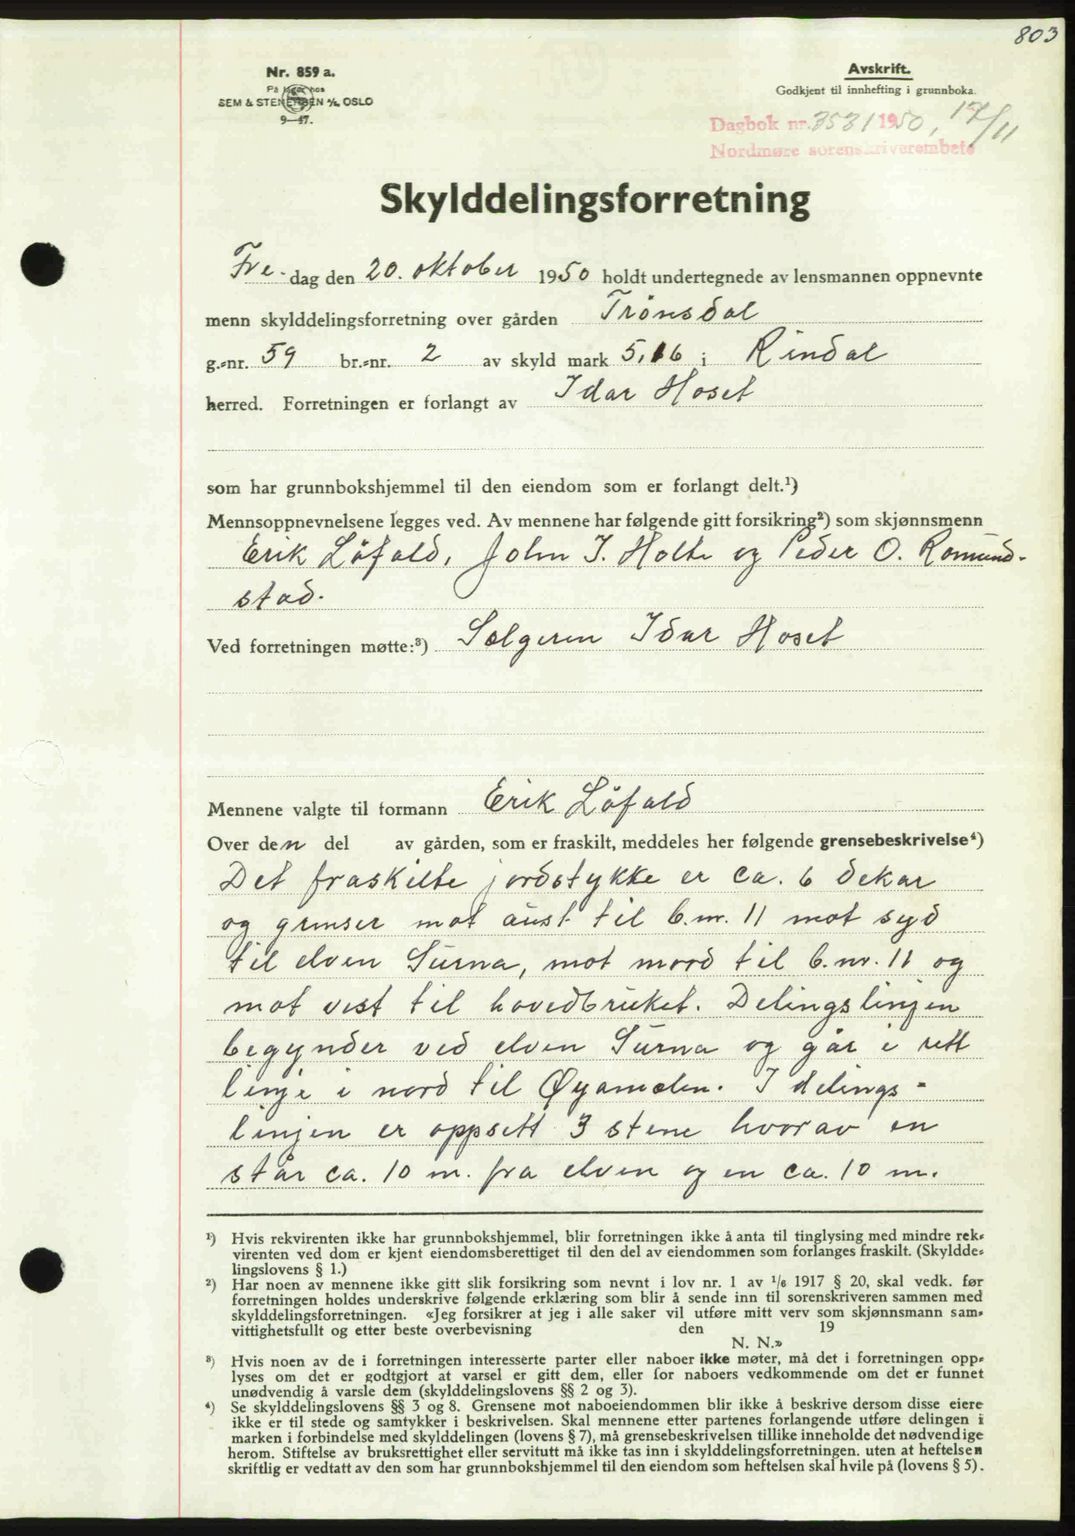 803
Nr. 859 a.
På lager hos
SEM & STENERSEN A/S. OSLO
9—47.
Avskrift.
Godkjent til innhefting i grunnboka.
Dagbok nr. 3531 1950, 17/11
Nordmøre sorenskriverembete
Skylddelingsforretning
Fre-dag den 20. oktober 1950 holdt undertegnede av lensmannen oppnevnte
menn skylddelingsforretning over gården Trönsdal
g.-nr. 59 br.-nr. 2 av skyld mark 5,16 i Rindal
herred. Forretningen er forlangt av Idar Hoset
som har grunnbokshjemmel til den eiendom som er forlangt delt.¹)
Mennsoppnevnelsene legges ved. Av mennene har følgende gitt forsikring²) som skjønnsmenn
Erik Löfald, John I. Holte og Peder O. Romund-
stad.
Ved forretningen møtte:³) Selgeren Idar Hoset
Mennene valgte til formann Erik Löfald
Over den del av gården, som er fraskilt, meddeles her følgende grensebeskrivelse⁴)
Det fraskilte jordstykke er ca. 6 dekar
og grenser mot aust til b.nr. 11 mot syd
til elven Surna, mot nord til b.nr. 11 og
mot vest til hovedbruket. Delingslinjen
begynder ved elven Surna og går i rett
linje i nord til Øyamelen. I delings-
linjen er oppsett 3 stene hvorav en
står ca. 10 m. fra elven og en ca. 10 m.
¹) Hvis rekvirenten ikke har grunnbokshjemmel, blir forretningen ikke å anta til tinglysing med mindre rek-
virenten ved dom er kjent eiendomsberettiget til den del av eiendommen som forlanges fraskilt. (Skyldde-
lingslovens § 1.)
²) Har noen av mennene ikke gitt slik forsikring som nevnt i lov nr. 1 av 1/6 1917 § 20, skal vedk. før
forretningen holdes underskrive følgende erklæring som blir å sende inn til sorenskriveren sammen med
skylddelingsforretningen. «Jeg forsikrer at jeg i alle saker vil utføre mitt verv som skjønnsmann sam-
vittighetsfullt og etter beste overbevisning den 19
N. N.»
³) Hvis noen av de i forretningen interesserte parter eller naboer ikke møter, må det i forretningen opp-
lyses om det er godtgjort at varsel er gitt dem, eller for naboers vedkommende om det er funnet
unødvendig å varsle dem (skylddelingslovens §§ 2 og 3).
⁴) Se skylddelingslovens §§ 3 og 8. Grensene mot naboeiendommen blir ikke å beskrive dersom disse eiere
ikke er til stede og samtykker i beskrivelsen. Skal mennene etter partenes forlangende utføre delingen i
marken i forbindelse med skylddelingen (lovens § 7), må grensebeskrivelsen tillike inneholde det nødvendige
herom. Stiftelse av bruksrettighet eller servitutt må ikke tas inn i skylddelingsforretningen. uten at heftelsen
skriftlig er vedtatt av den som har grunnbokshjemmel til den eiendom som heftelsen skal hvile på (lovens § 5).